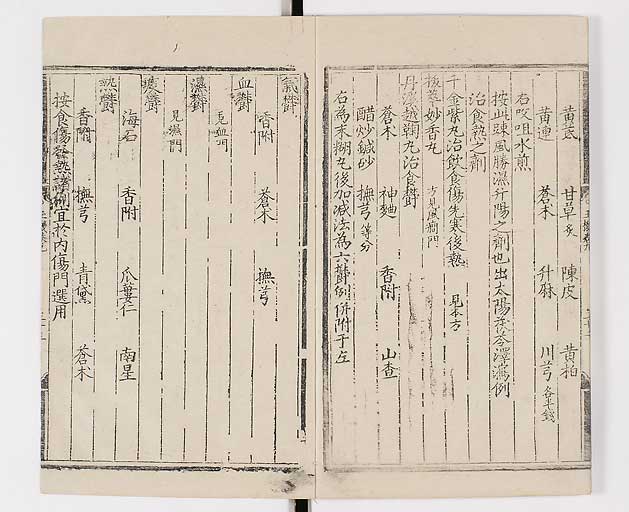 黄芪 甘草炙 陳皮 黄柏
黄連 蒼朮 升麻 川芎各半錢
右㕮咀水煎
按此疎風勝濕升陽之劑也出太陽 芩澤瀉例
治食熱之劑
千金紫丸治飲食傷先寒後熱 見本方
抜萃妙香丸 方見風癎門
丹溪越鞠丸治食欝
蒼朮 神麯 香附 山查
醋炒鹹砂 撫芎等分
右為末糊丸後加减法為六欝例併附于左
氣欝
香附 蒼朮 撫芎
血欝
見血門
濕欝
見濕門
痰欝
海石 香附 瓜蔞仁 南星
熱欝
香附 撫芎 青黛 蒼朮
按食傷發熱 例宜於内傷門選用